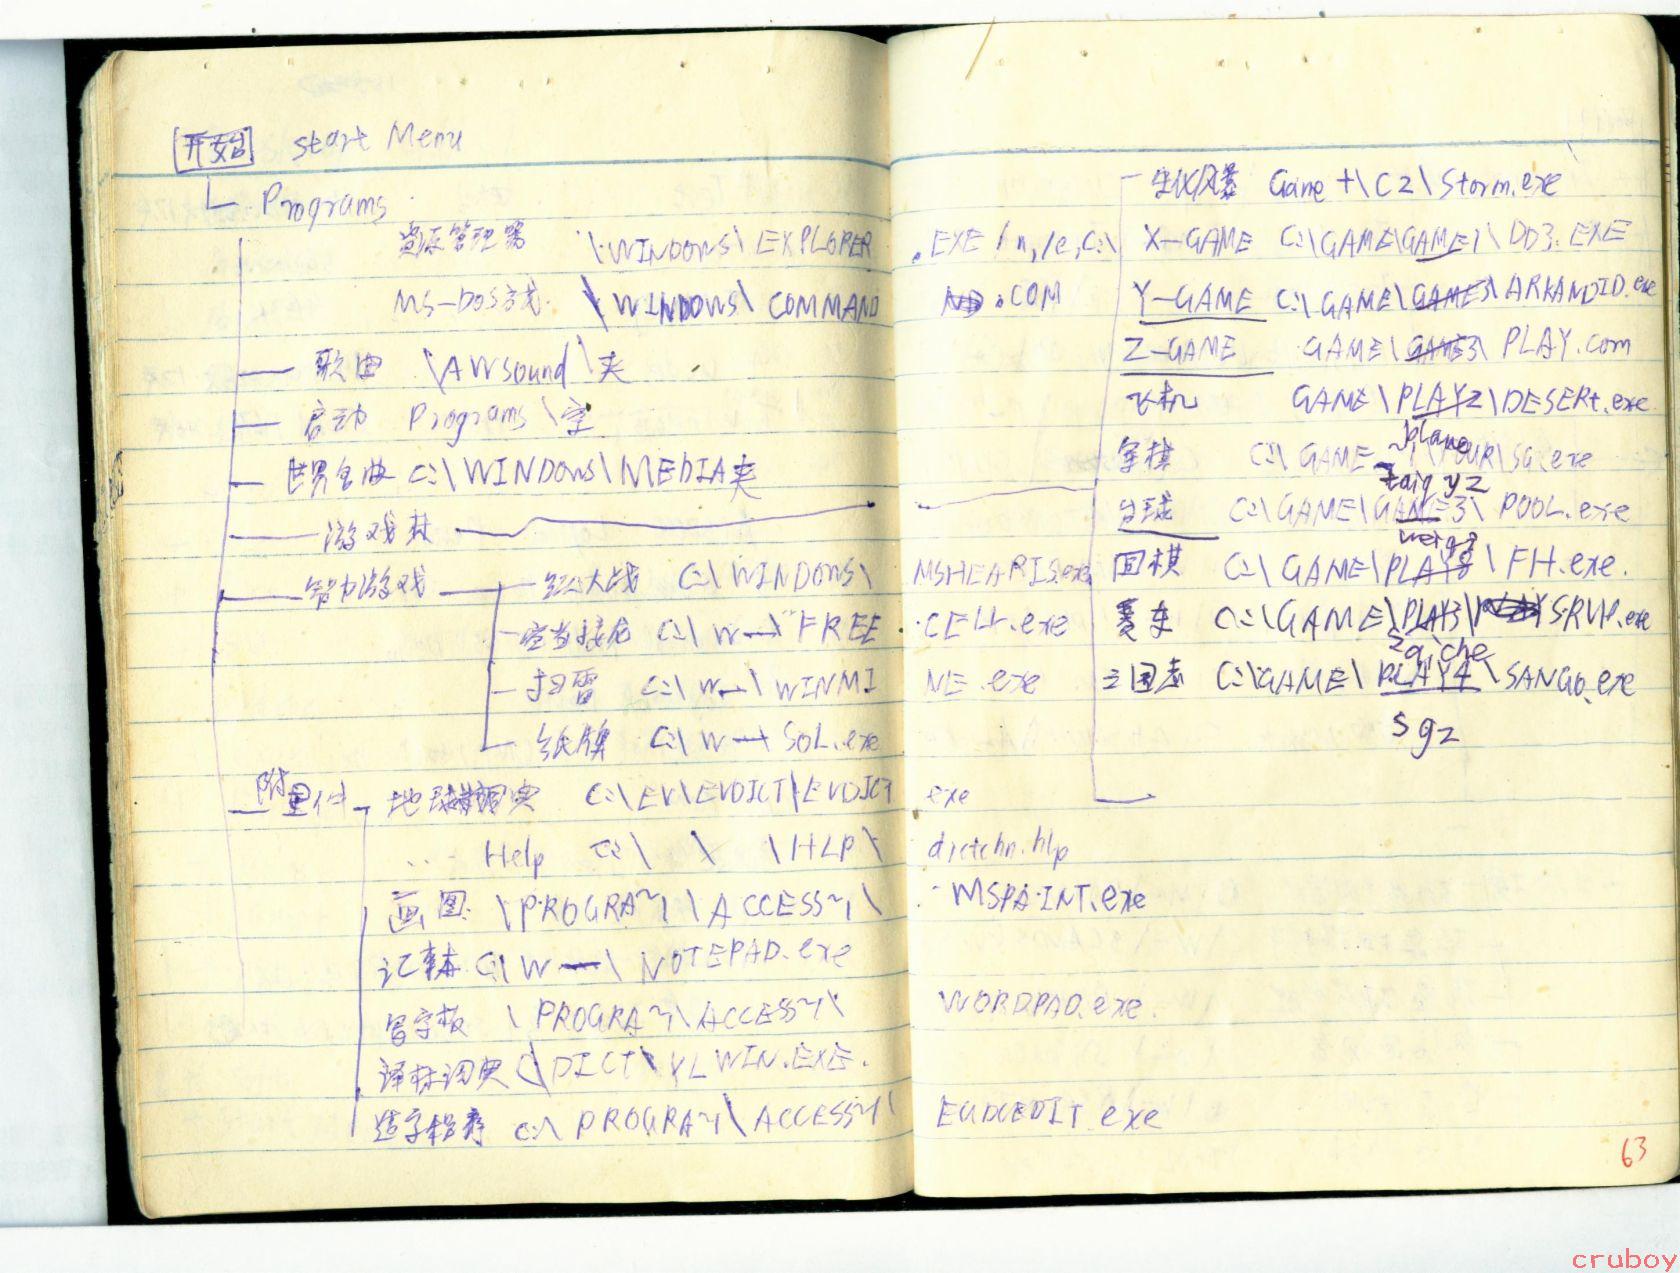 开始 Start Menu
Programs
资源管理器 \WINDOWS\EXPLORER.EXE /n,/e,C:\
MS-DOS方式 \WINDOWS\COMMAND.COM
歌曲 \AWSound\夹
启动 Programs\空
世界名曲 C:\WINDOWS\MEDIA夹
游戏
智力游戏 红心大战 C:\WINDOWS\MSHEARTS.exe
空当接龙 C:\W—\FREECELL.exe
扫雷 C:\W—\WINMINE.exe
纸牌 C:\W—\SOL.exe
附件 地球词典 C:\EV\EVDICT\EVDICT.exe
Help C:\ \ \HLP\dictchn.hlp
画图 \PROGRA~1\ACCESS~1\MSPAINT.exe
记事本 C:\W—\NOTEPAD.exe
写字板 \PROGRA~1\ACCESS~1\WORDPAD.exe.
译林词典 C:\DICT\YLWIN.EXE.
造字程序 C:\PROGRA~1\ACCESS~1\EUDCEDIT.exe
生化风暴 Game+\C2\Storm.exe
X-GAME C:\GAME\GAME1\DD3.EXE
Y-GAME C:\GAME\GAME3\ARKANOID.exe
Z-GAME GAME\GAME3\PLAY.com
飞机 GAME\PLAY2\DESERt.exe
plane
军棋 C:\GAME \FOUR\SG.exe
Taiqyz
台球 C:\GAME\GAME3\POOL.exe
weiqi
围棋 C:\GAME\PLAY8\FH.exe.
赛车 C:\GAME\PLAY3\SRVP.exe
Saiche
三国志 C:\GAME\PLAY4\SANGO.exe
sgz
63
cruboy